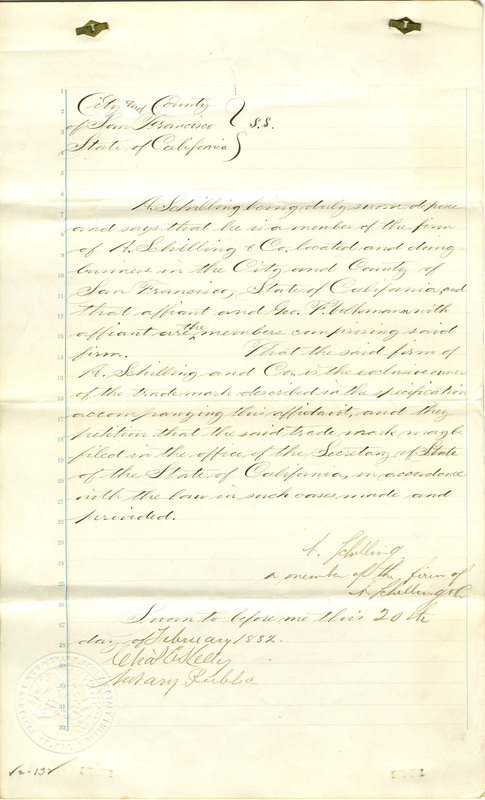 City and County
of San Francisco } S.S.
State of California
A. Schilling being duly sworn depose
and says that he is a member of the firm
of A. Schilling & Co. located and doing
business in the City and County of
San Francisco, State of California, and
that affiant and Geo. F. Volkmann with
affiant are the members comprising said
firm. That the said firm of
A. Schilling and Co. is the exclusive owner
of the trade mark described in the specification
accompanying this affidavit, and they
petition that the said trade mark may be
filed in the office of the Secretary of State
of the State of California, in accordance
with the law in such cases made and
provided.
A. Schilling
a member of the firm of
A. Schilling & Co.
Sworn to before me this 20th
day of February 1882.
Chas E. Kelly
Notary Public